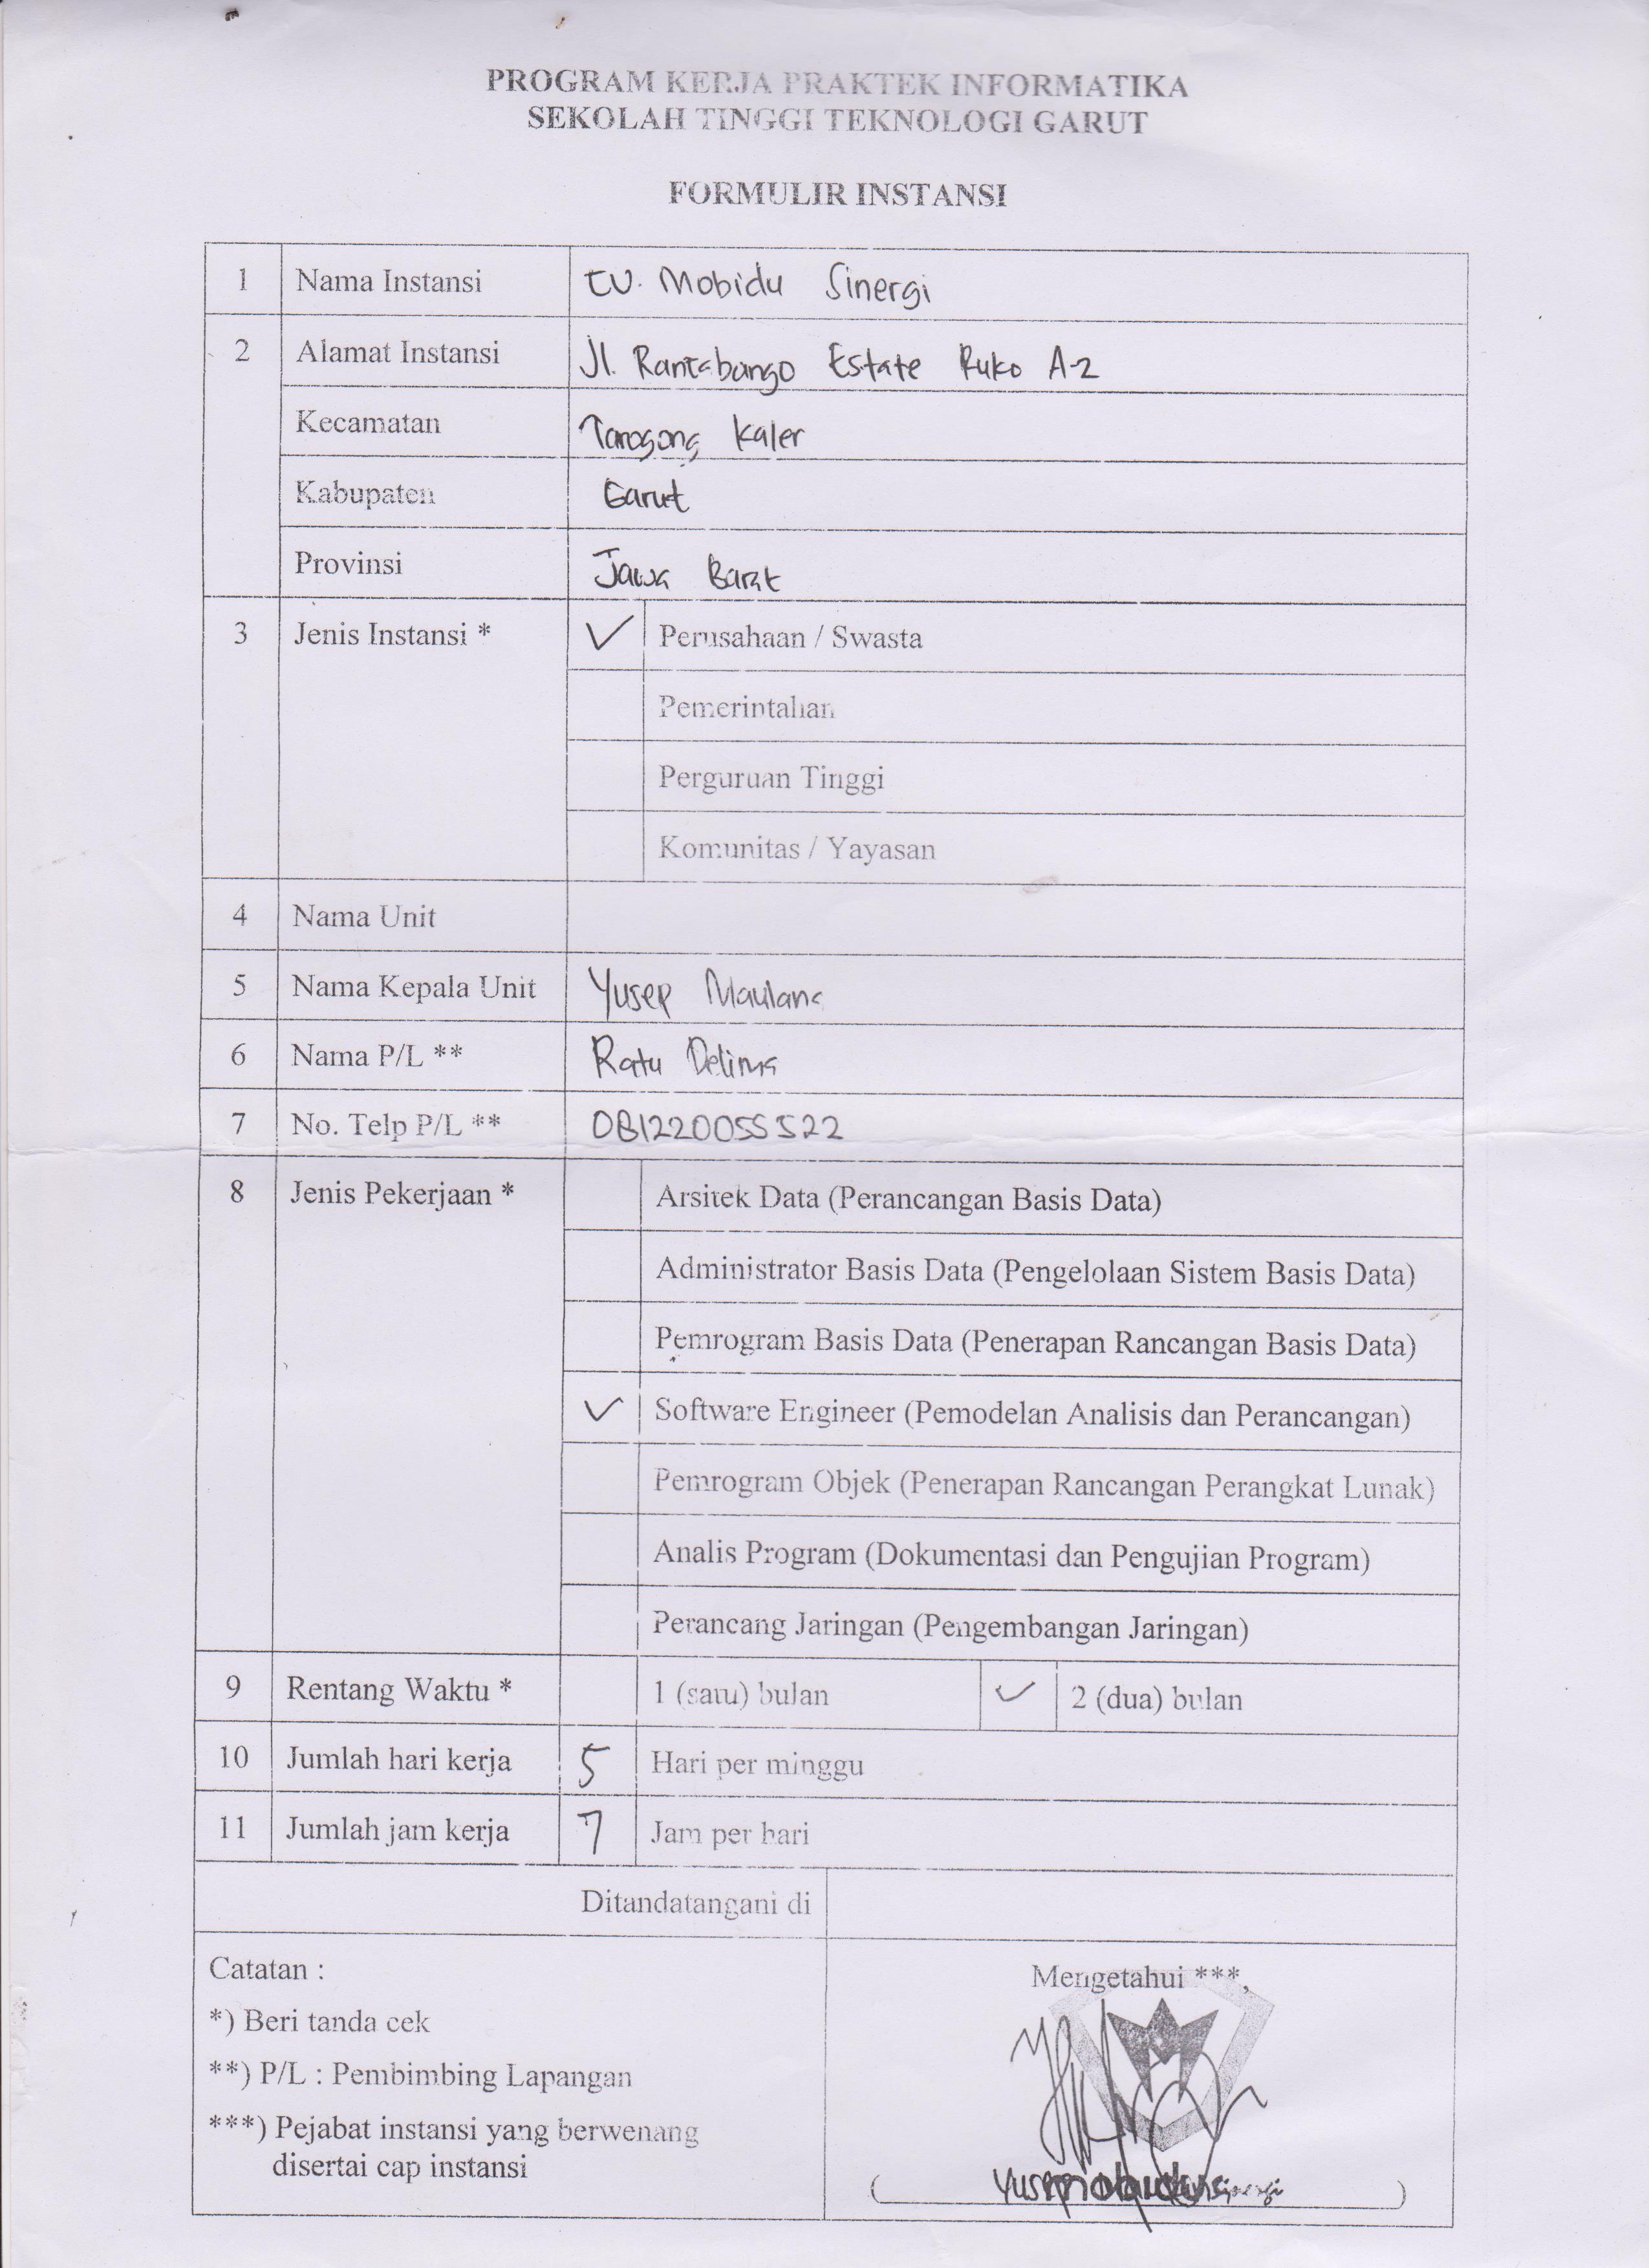 PROGRAM KERJA PRAKTEK INFORMATIKA
SEKOLAH TINGGI TEKNOLOGI GARUT
FORMULIR INSTANSI
1 Nama Instansi CV. Mobidu Sinergi
2 Alamat Instansi Jl. Rancabango Estate Ruko A-2
Kecamatan Tarogong Kaler
Kabupaten Garut
Provinsi Jawa Barat
3 Jenis Instansi * ✓ Perusahaan / Swasta
Pemerintahan
Perguruan Tinggi
Komunitas / Yayasan
4 Nama Unit
5 Nama Kepala Unit Yusep Maulana
6 Nama P/L ** Ratu Delima
7 No. Telp P/L ** 081220055522
8 Jenis Pekerjaan * Arsitek Data (Perancangan Basis Data)
Administrator Basis Data (Pengelolaan Sistem Basis Data)
Pemrogram Basis Data (Penerapan Rancangan Basis Data)
✓ Software Engineer (Pemodelan Analisis dan Perancangan)
Pemrogram Objek (Penerapan Rancangan Perangkat Lunak)
Analis Program (Dokumentasi dan Pengujian Program)
Perancang Jaringan (Pengembangan Jaringan)
9 Rentang Waktu * 1 (satu) bulan ✓ 2 (dua) bulan
10 Jumlah hari kerja 5 Hari per minggu
11 Jumlah jam kerja 7 Jam per hari
Ditandatangani di
Catatan :
*) Beri tanda cek
**) P/L : Pembimbing Lapangan
***) Pejabat instansi yang berwenang
disertai cap instansi
Mengetahui ***,
Yusep
mobidu sinergi